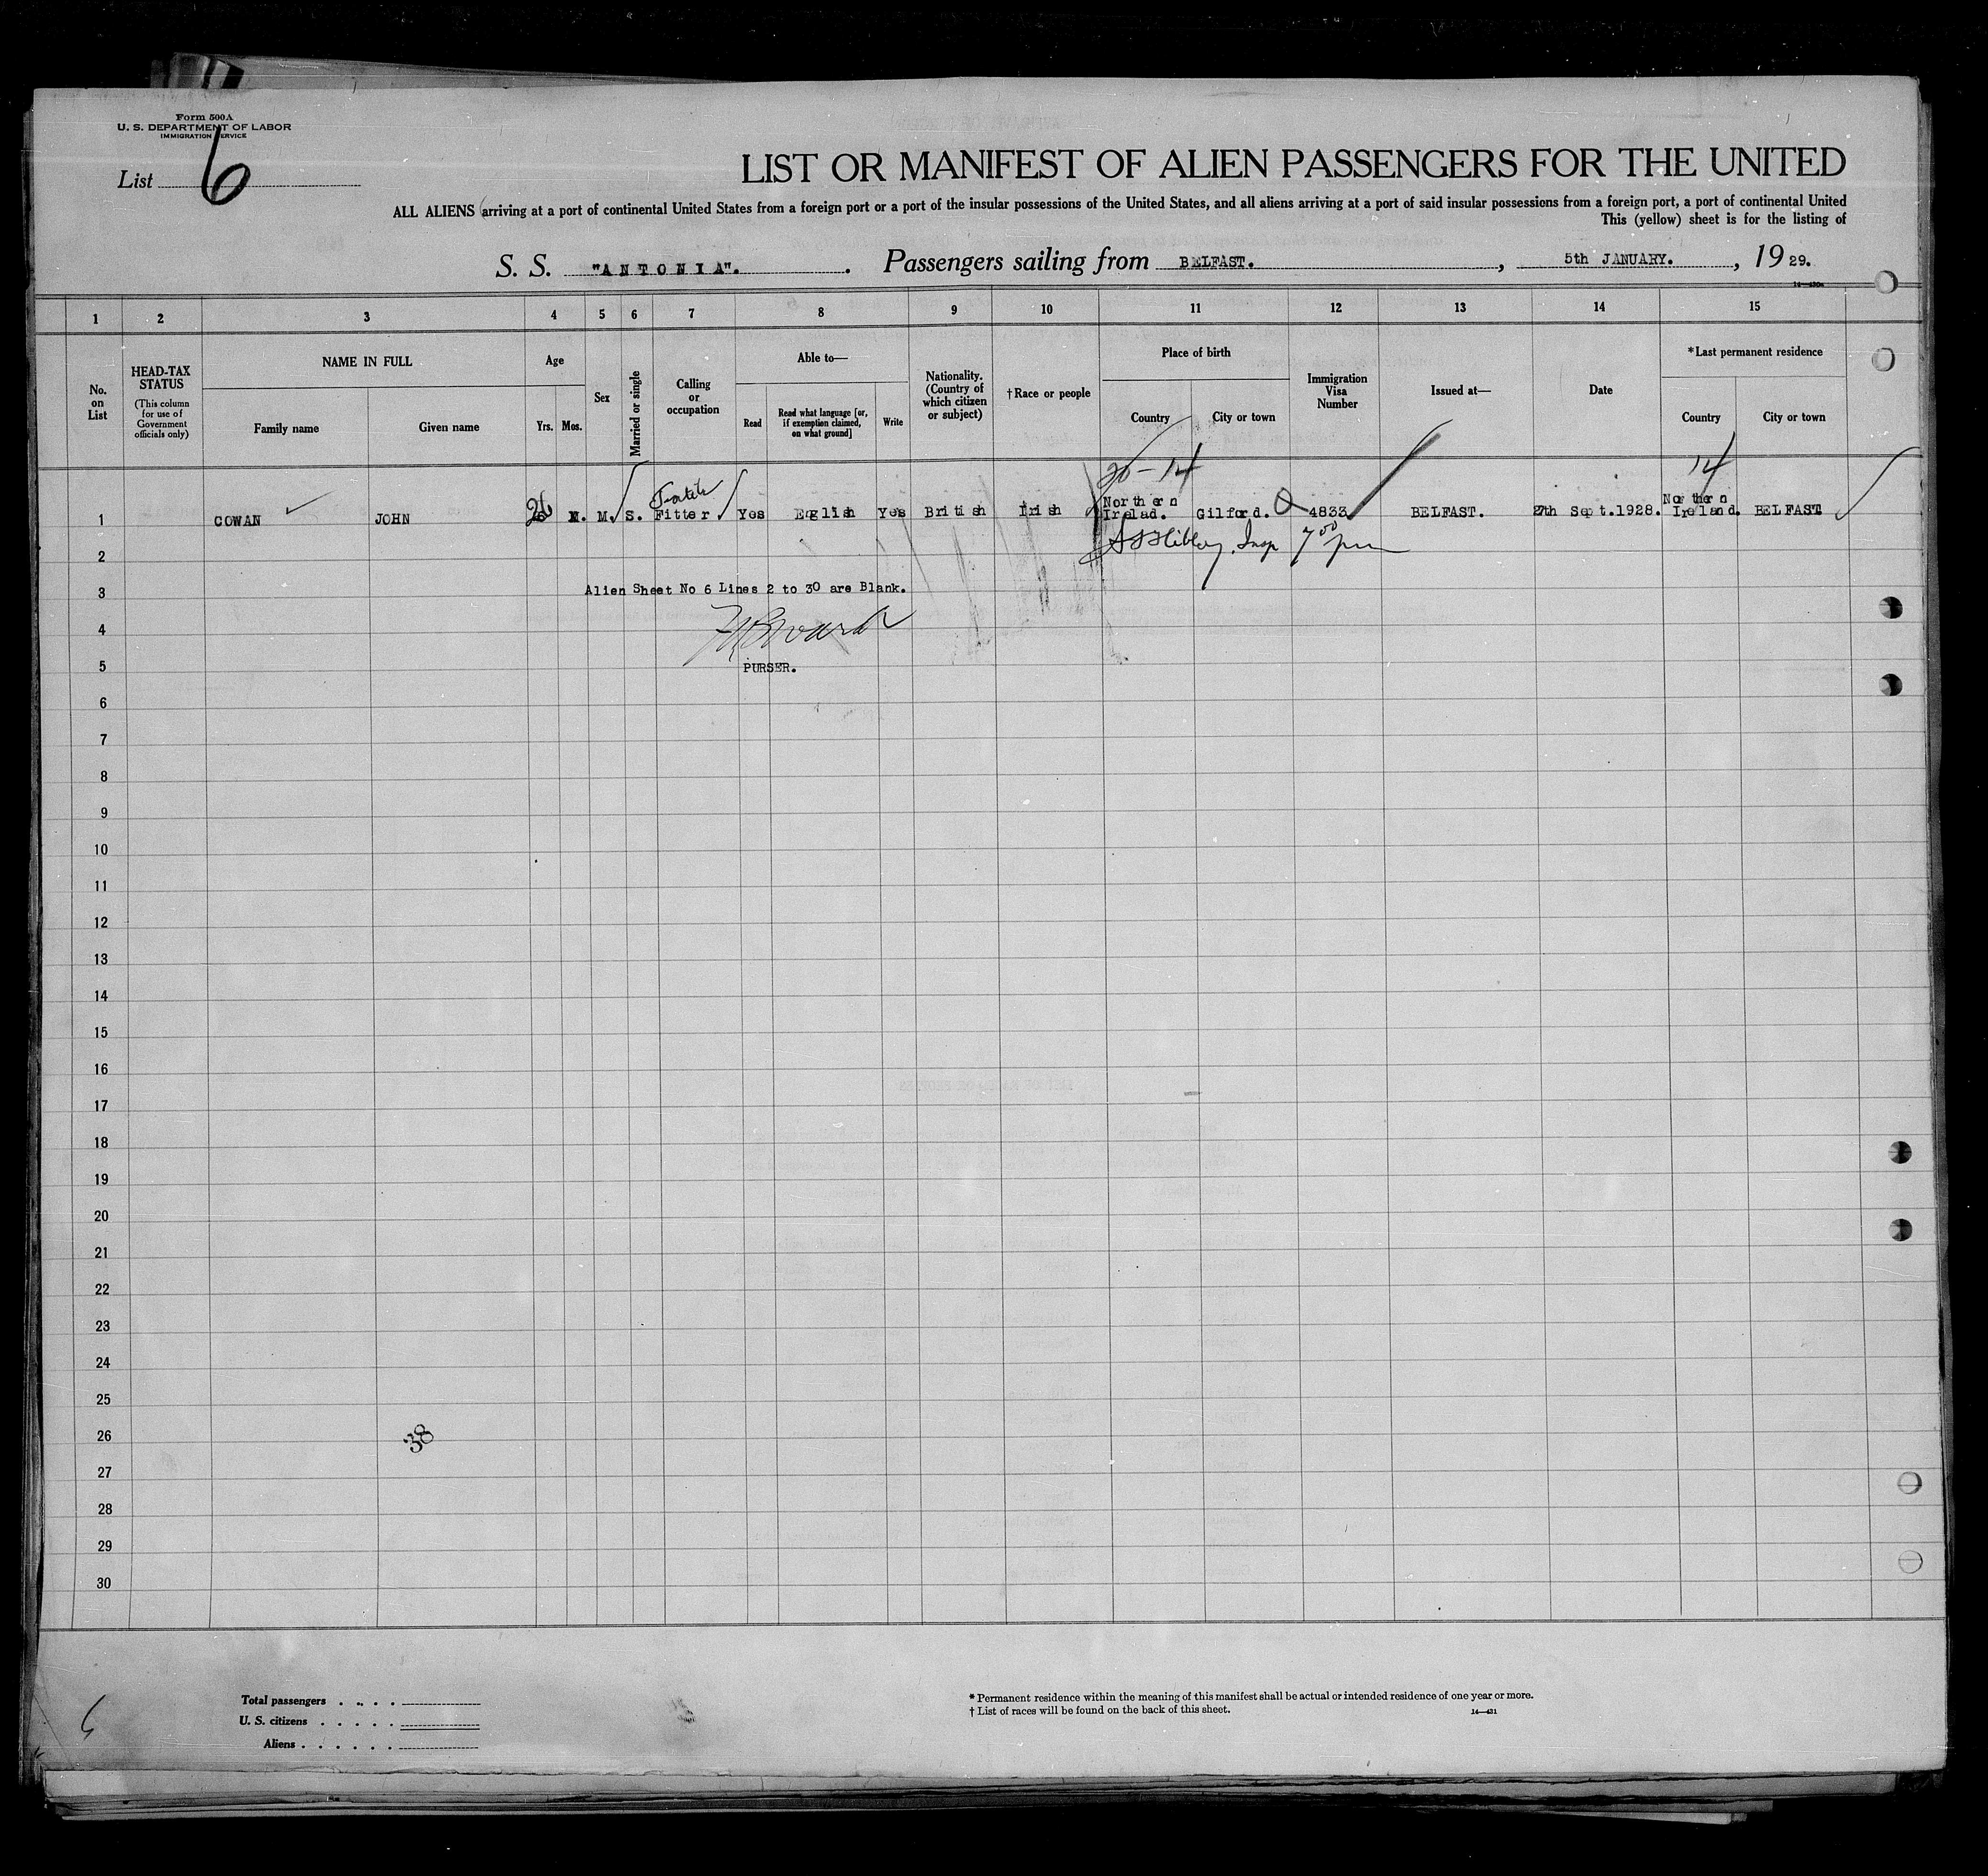 Form 500A
U. S. DEPARTMENT OF LABOR
IMMIGRATION SERVICE
List 6
LIST OR MANIFEST OF ALIEN PASSENGERS FOR THE UNITED
ALL ALIENS arriving at a port of continental United States from a foreign port or a port of the insular possessions of the United States, and all aliens arriving at a port of said insular possessions from a foreign port, a port of continental United
This (yellow) sheet is for the listing of
S. S. "ANTONIA". Passengers sailing from BELFAST. , 5th JANUARY. , 19 29.
1 2 3 4 5 6 7 8 9 10 11 12 13 14 15
No. on List
HEAD-TAX STATUS
(This column for use of Government officials only)
NAME IN FULL
Family name Given name
Age
Yrs. Mos.
Sex
Married or single
Calling or occupation
Able to—
Read
Read what language [or, if exemption claimed, on what ground]
Write
Nationality. (Country of which citizen or subject)
†Race or people
Place of birth
Country City or town
Immigration Visa Number
Issued at—
Date
*Last permanent residence
Country City or town
20-14 14
1 COWAN JOHN 26 M. M. S. Fitter. Yes English Yes British Irish Northern Irelad. Gilford. 4833 BELFAST. 27th Sept.1928. Northern Ireland. BELFAST.
2 Insp 7 50 pm
3 Alien Sheet No 6 Lines 2 to 30 are Blank.
4
5 PURSER.
6
7
8
9
10
11
12
13
14
15
16
17
18
19
20
21
22
23
24
25
26 38
27
28
29
30
Total passengers . . . .
U. S. citizens . . . . .
Aliens . . . . . .
* Permanent residence within the meaning of this manifest shall be actual or intended residence of one year or more.
† List of races will be found on the back of this sheet.
14—431